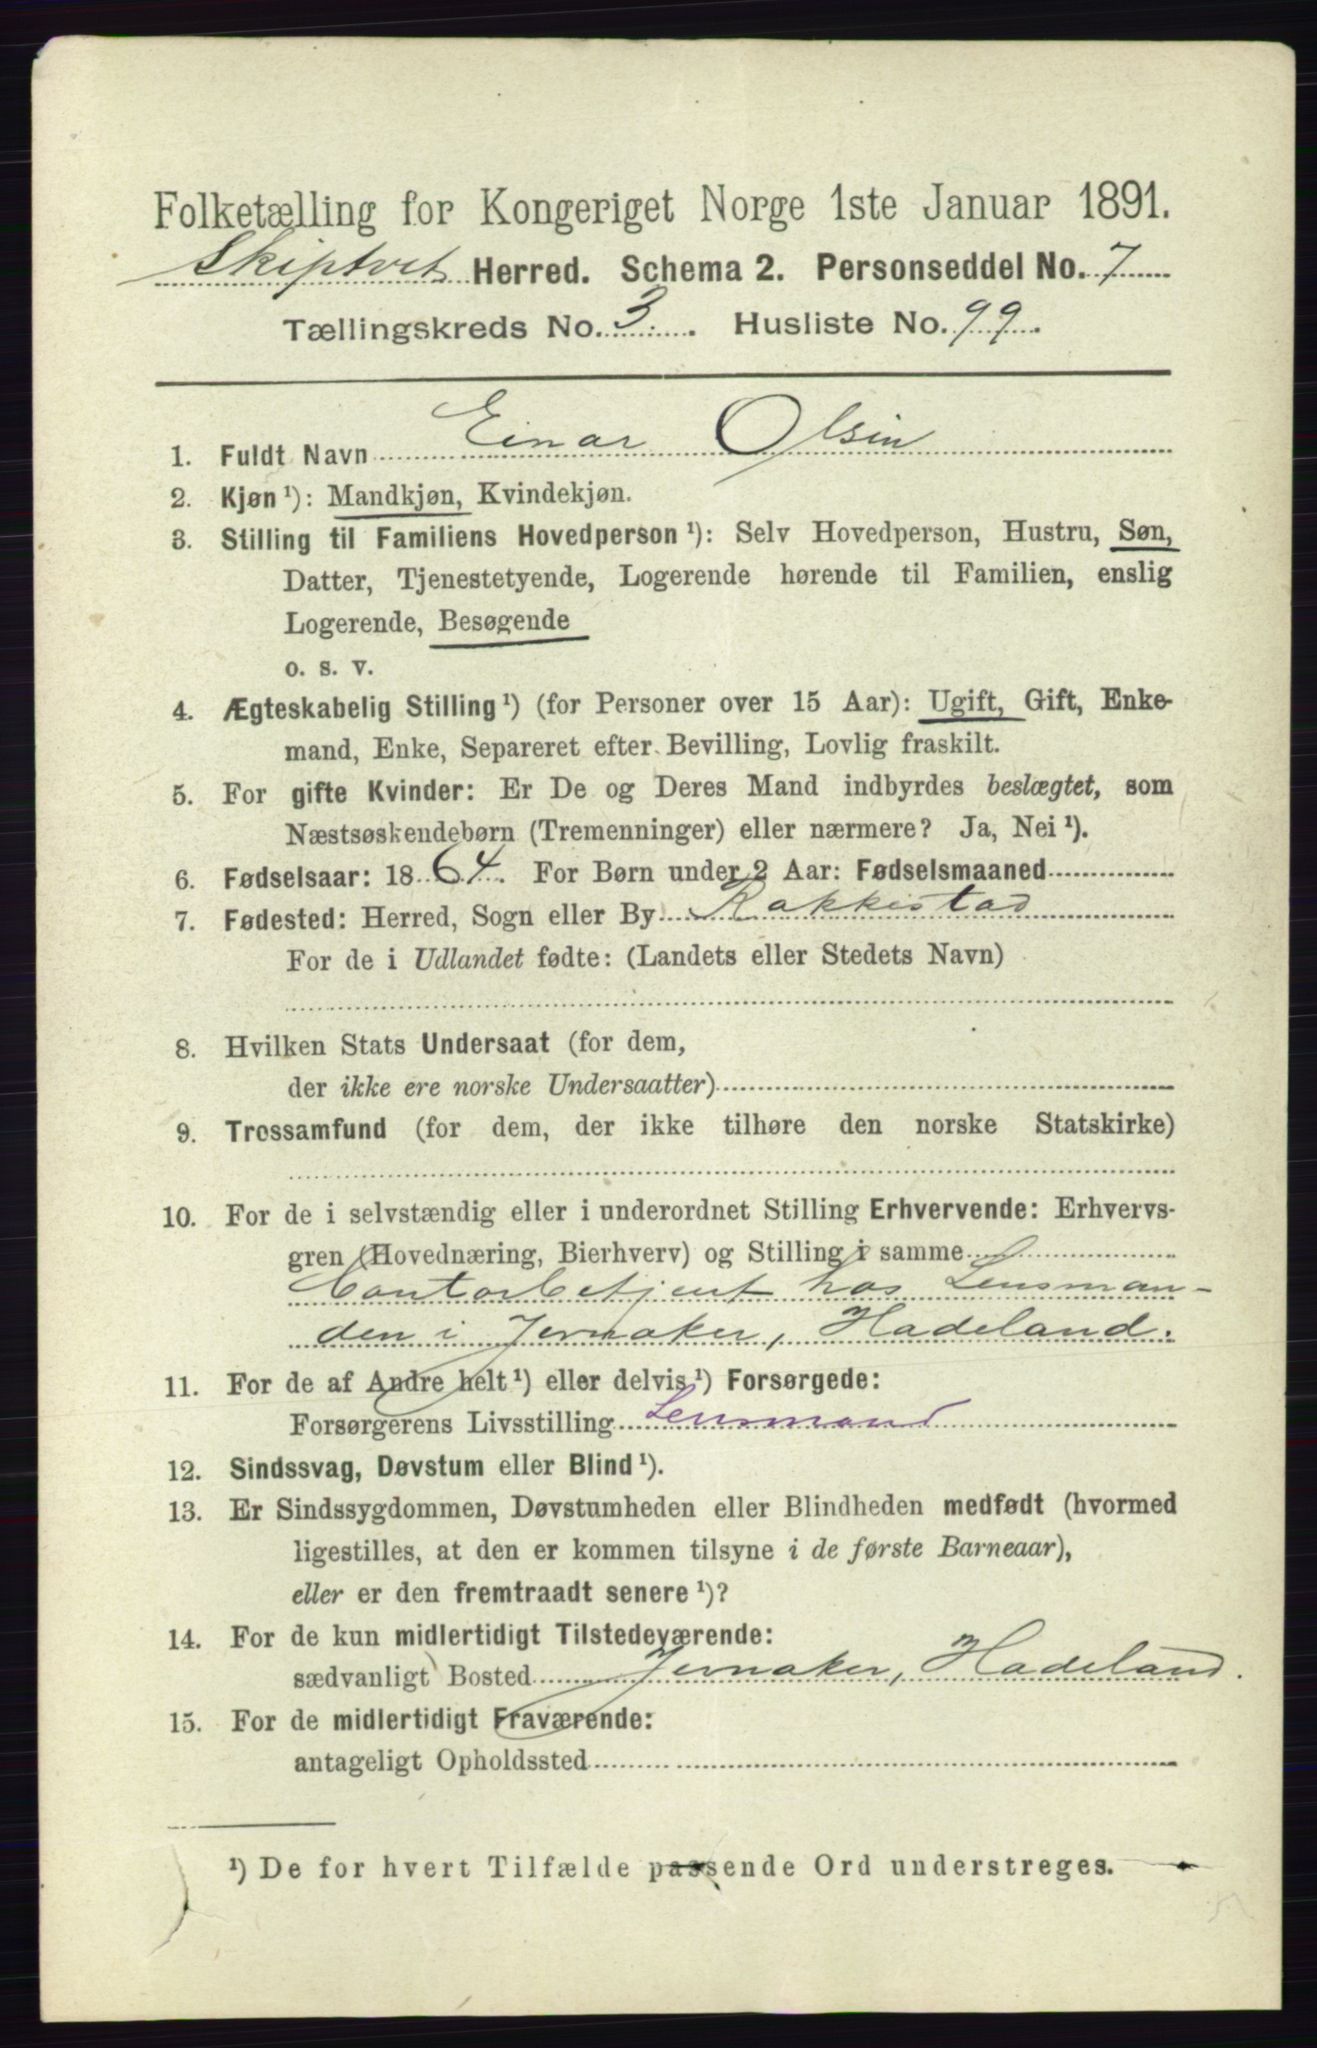 Folketælling for Kongeriget Norge 1ste Januar 1891.
Skiptvet Herred. Schema 2. Personseddel No. 7
Tællingskreds No. 3. Husliste No. 99.
1. Fuldt Navn Einar Olsin
2. Kjøn ¹): Mandkjøn, Kvindekjøn.
3. Stilling til Familiens Hovedperson ¹): Selv Hovedperson, Hustru, Søn,
Datter, Tjenestetyende, Logerende hørende til Familien, enslig
Logerende, Besøgende
o. s. v.
4. Ægteskabelig Stilling ¹) (for Personer over 15 Aar): Ugift, Gift, Enke-
mand, Enke, Separeret efter Bevilling, Lovlig fraskilt.
5. For gifte Kvinder: Er De og Deres Mand indbyrdes beslægtet, som
Næstsøskendebørn (Tremenninger) eller nærmere? Ja, Nei ¹).
6. Fødselsaar: 1864. For Børn under 2 Aar: Fødselsmaaned
7. Fødested: Herred, Sogn eller By Rakkestad
For de i Udlandet fødte: (Landets eller Stedets Navn)
8. Hvilken Stats Undersaat (for dem,
der ikke ere norske Undersaatter)
9. Trossamfund (for dem, der ikke tilhøre den norske Statskirke)
10. For de i selvstændig eller i underordnet Stilling Erhvervende: Erhvervs-
gren (Hovednæring, Bierhverv) og Stilling i samme
Contorbetjent hos Lensman-
den i Jevnaker, Hadeland.
11. For de af Andre helt ¹) eller delvis ¹) Forsørgede:
Forsørgerens Livsstilling Lensmand
12. Sindssvag, Døvstum eller Blind ¹).
13. Er Sindssygdommen, Døvstumheden eller Blindheden medfødt (hvormed
ligestilles, at den er kommen tilsyne i de første Barneaar),
eller er den fremtraadt senere ¹)?
14. For de kun midlertidigt Tilstedeværende:
sædvanligt Bosted Jevnaker, Hadeland.
15. For de midlertidigt Fraværende:
antageligt Opholdssted
¹) De for hvert Tilfælde passende Ord understreges.